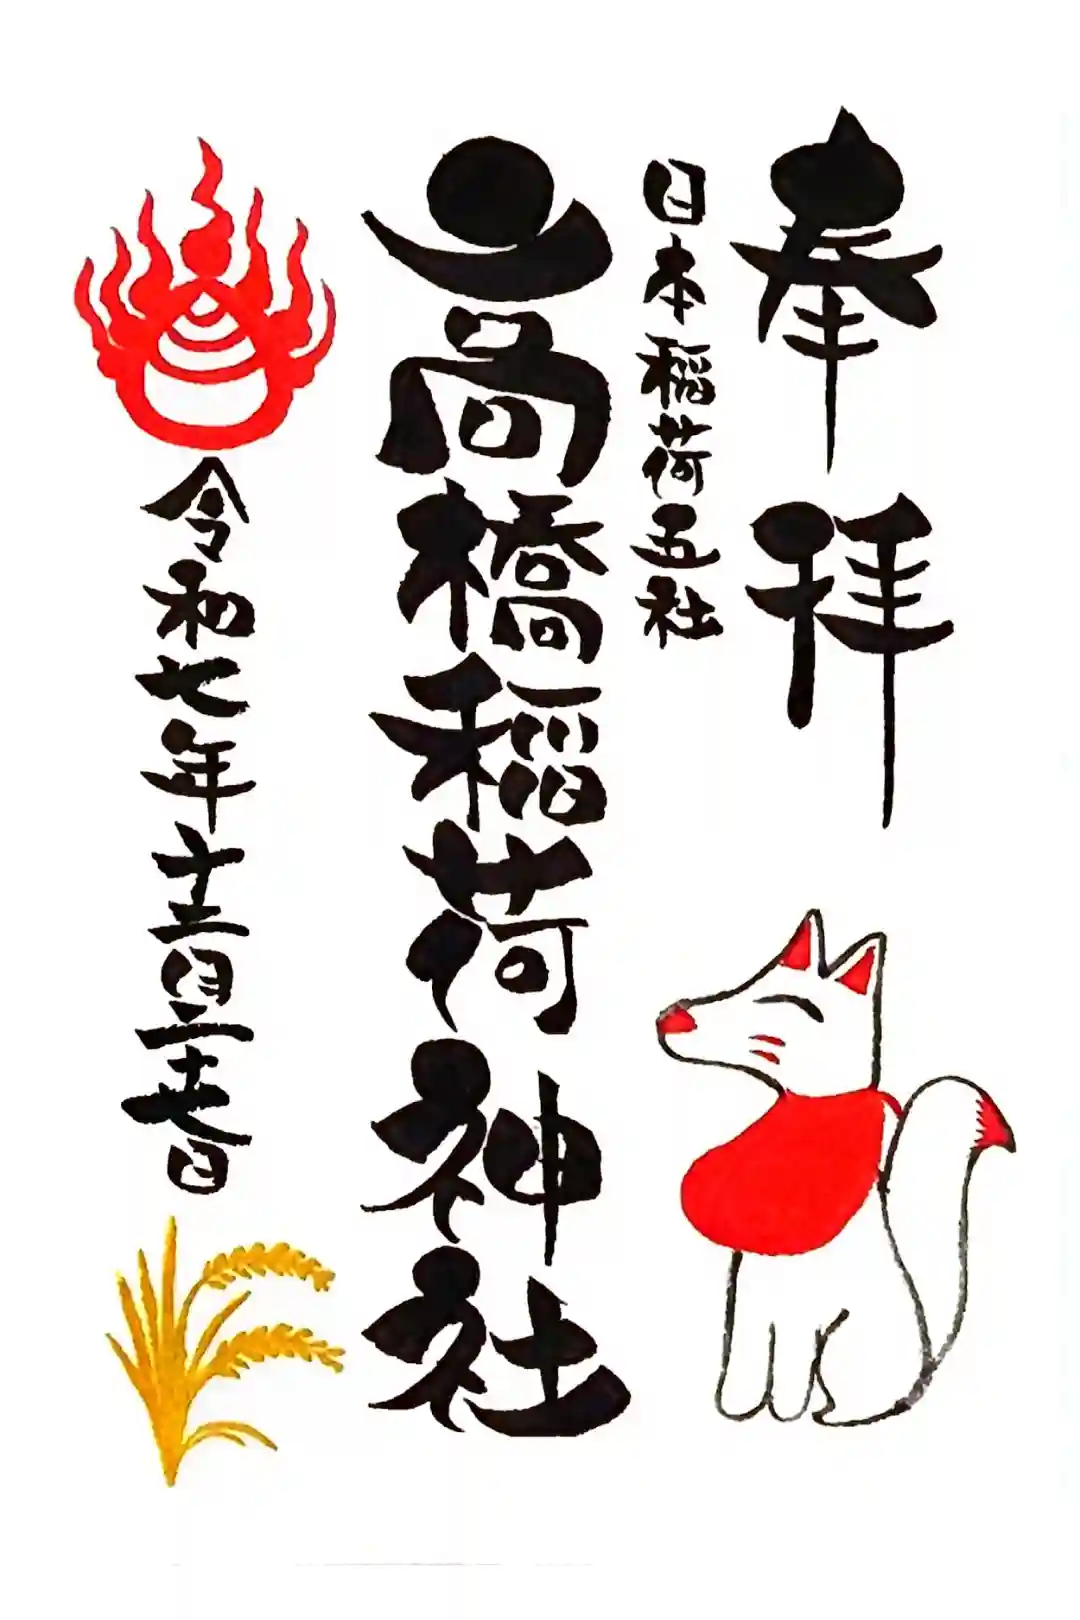 奉拝
日本稲荷五社
高橋稲荷神社
令和七年十二月二十七日